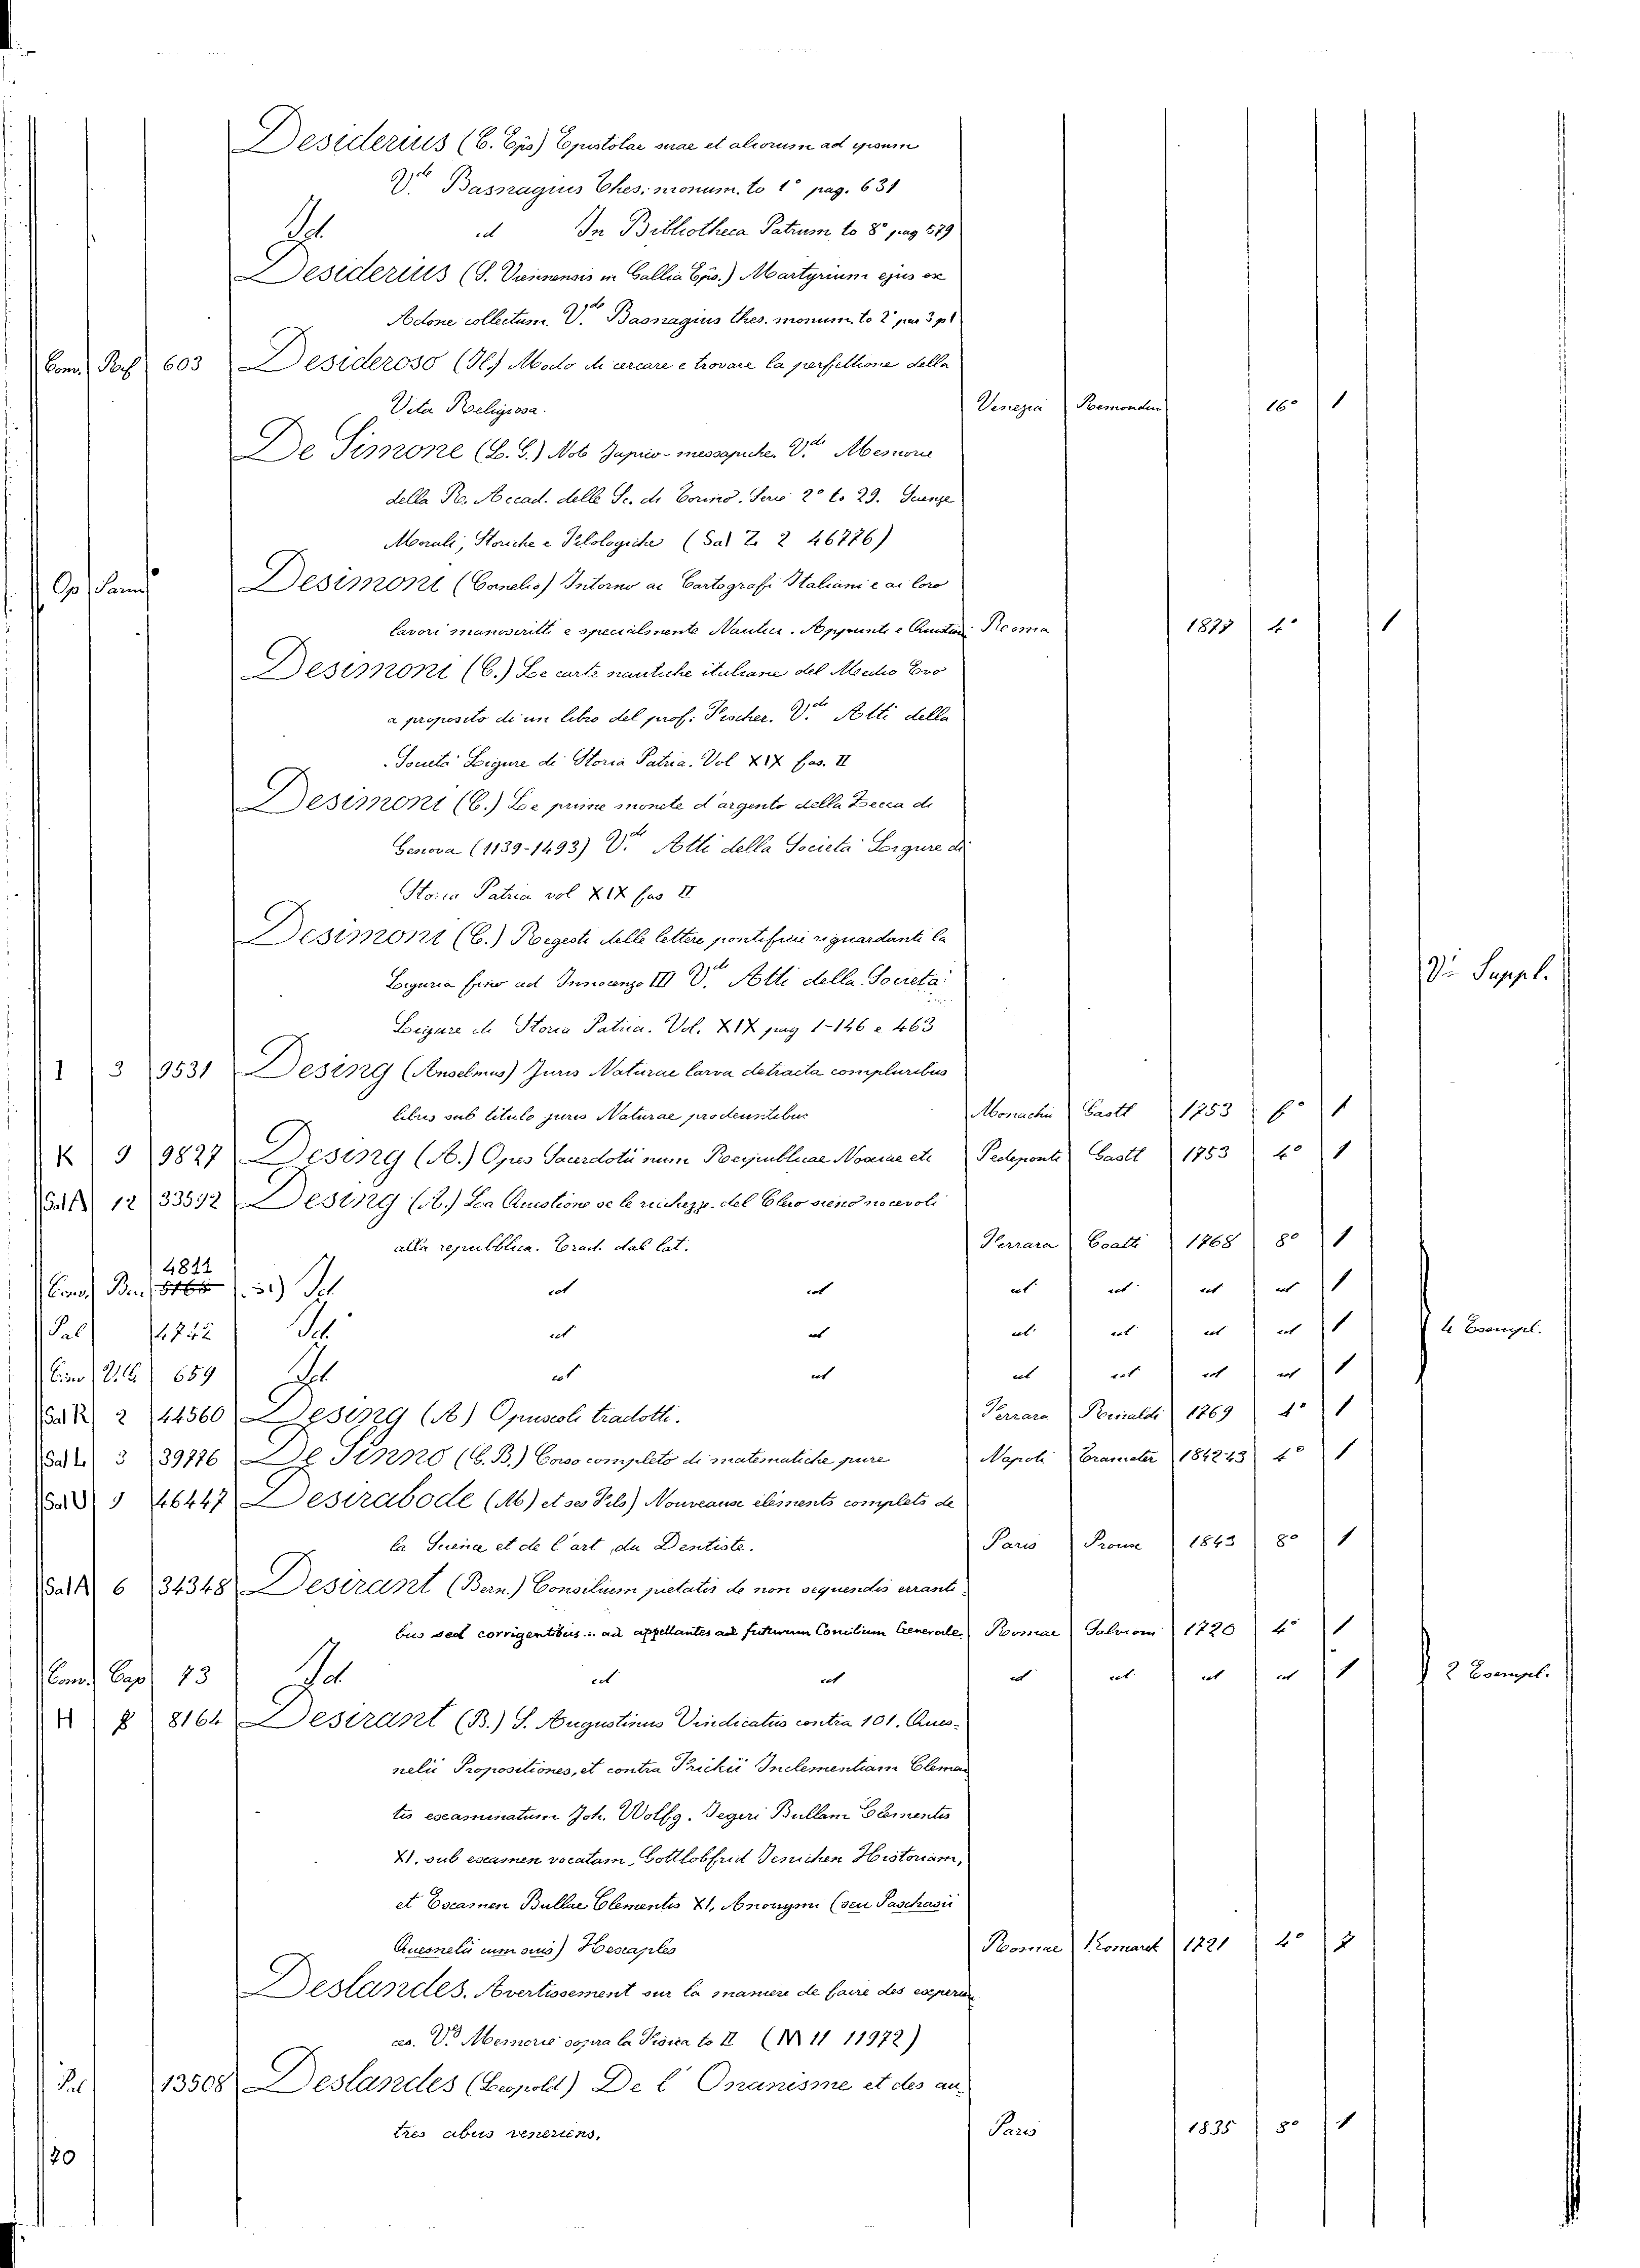 Desiderius (C. Eps) Epistolae suae et aliorum ad ipsum
V.de Basnagius Thes. monum. to 1° pag. 631
Id. id In Bibliotheca Patrum to 8° pag 579
Desiderius (S. Viennensis in Gallia Eps.) Martyrium ejus ex
Adone collectum. V.de Basnagius thes. monum. to 2° par 3 p 1
Conv. Ref 603 Desideroso (Il) Modo di cercare e trovare la perfettione della
Vita Religiosa. Venezia Remondin 16° 1
De Simone (L. G.) Note Japico-messapiche. V.de Memorie
della R. Accad. delle Sc. di Torino. Serie 2° to 29. Scienze
Morali, Storiche e Filologiche (Sal Z 2 46776)
Op Desimoni (Cornelio) Intorno ai Cartografi Italiani e ai loro
lavori manoscritti e specialmente Nautici. Appunti e Roma 1877 4° 1
Desimoni (C.) Le carte nautiche italiane del Medio Evo
a proposito di un libro del prof: Fischer. V.de Atti della
Società Ligure di Storia Patria. Vol XIX fas. II
Desimoni (C.) Le prime monete d'argento della Zecca di
Genova (1139-1493) V.de Atti della Società Ligure di
Storia Patria vol XIX fas II
Desimoni (C.) Regesti delle lettere pontificie riguardanti la
Liguria fino ad Innocenzo III V.de Atti della Società
Ligure di Storia Patria. Vol. XIX pag 1-146 e 463 V. Suppl.
I 3 9531 Desing (Anselmus) Juris Naturae larva detracta compluribus
libris sub titulo juris Naturae prodeuntibus Monachii Gastl 1753 f° 1
K 9 9827 Desing (A.) Opes Sacerdotii num Reipublicae Noxiae etc Pedeponte Gastl 1753 4° 1
Sal A 12 33592 Desing (A.) La Questione se le ricchezze del Clero sieno nocevoli
alla repubblica. Trad. dal lat. Ferrara Coatti 1768 8° 1
4811
Conv. Id. id id id id id id 1
Pal 4742 Id. id id id id id id 1 4 Esempl.
659 Id. id id id id id id 1
Sal R 2 44560 Desing (A) Opuscoli tradotti. Ferrara Rinaldi 1769 4° 1
Sal L 3 39776 De Sinno (G. B.) Corso completo di matematiche pure Napoli Tramater 1842 43 4° 1
Sal U 46447 Desirabode (M) et ses Fils) Nouveaux éléments complets de
la Science et de l'art du Dentiste. Paris 1843 8° 1
Sal A 6 34348 Desirant (Bern.) Consilium pietatis de non sequendis erranti-
bus sed corrigentibus... ad appellantes ad futurum Concilium Generale. Romae Salvioni 1720 4° 1
Conv. Cap 73 Id. id id id id id id 1 2 Esempl.
H 8 8164 Desirant (B.) S. Augustinus Vindicatus contra 101. Ques-
nelii Propositiones, et contra Frickii Inclementiam Clemen
tis examinatum Joh. Wolfg. Jegeri Bullam Clementis
XI. sub examen vocatam, Gottlobfrid Jenichen Historiam,
et Examen Bullae Clementis XI, Anonymi (seu Paschasii
Quesnelii cum suis) Hexaples Romae Komarek 1721 4° 2
Deslandes. Avertissement sur la maniere de faire des experien
ces. V.de Memorie sopra la Fisica to II (M 11 11972)
Pal 13508 Deslandes (Leopold) De l'Onanisme et des au-
tres abus veneriens. Paris 1835 8° 1
20